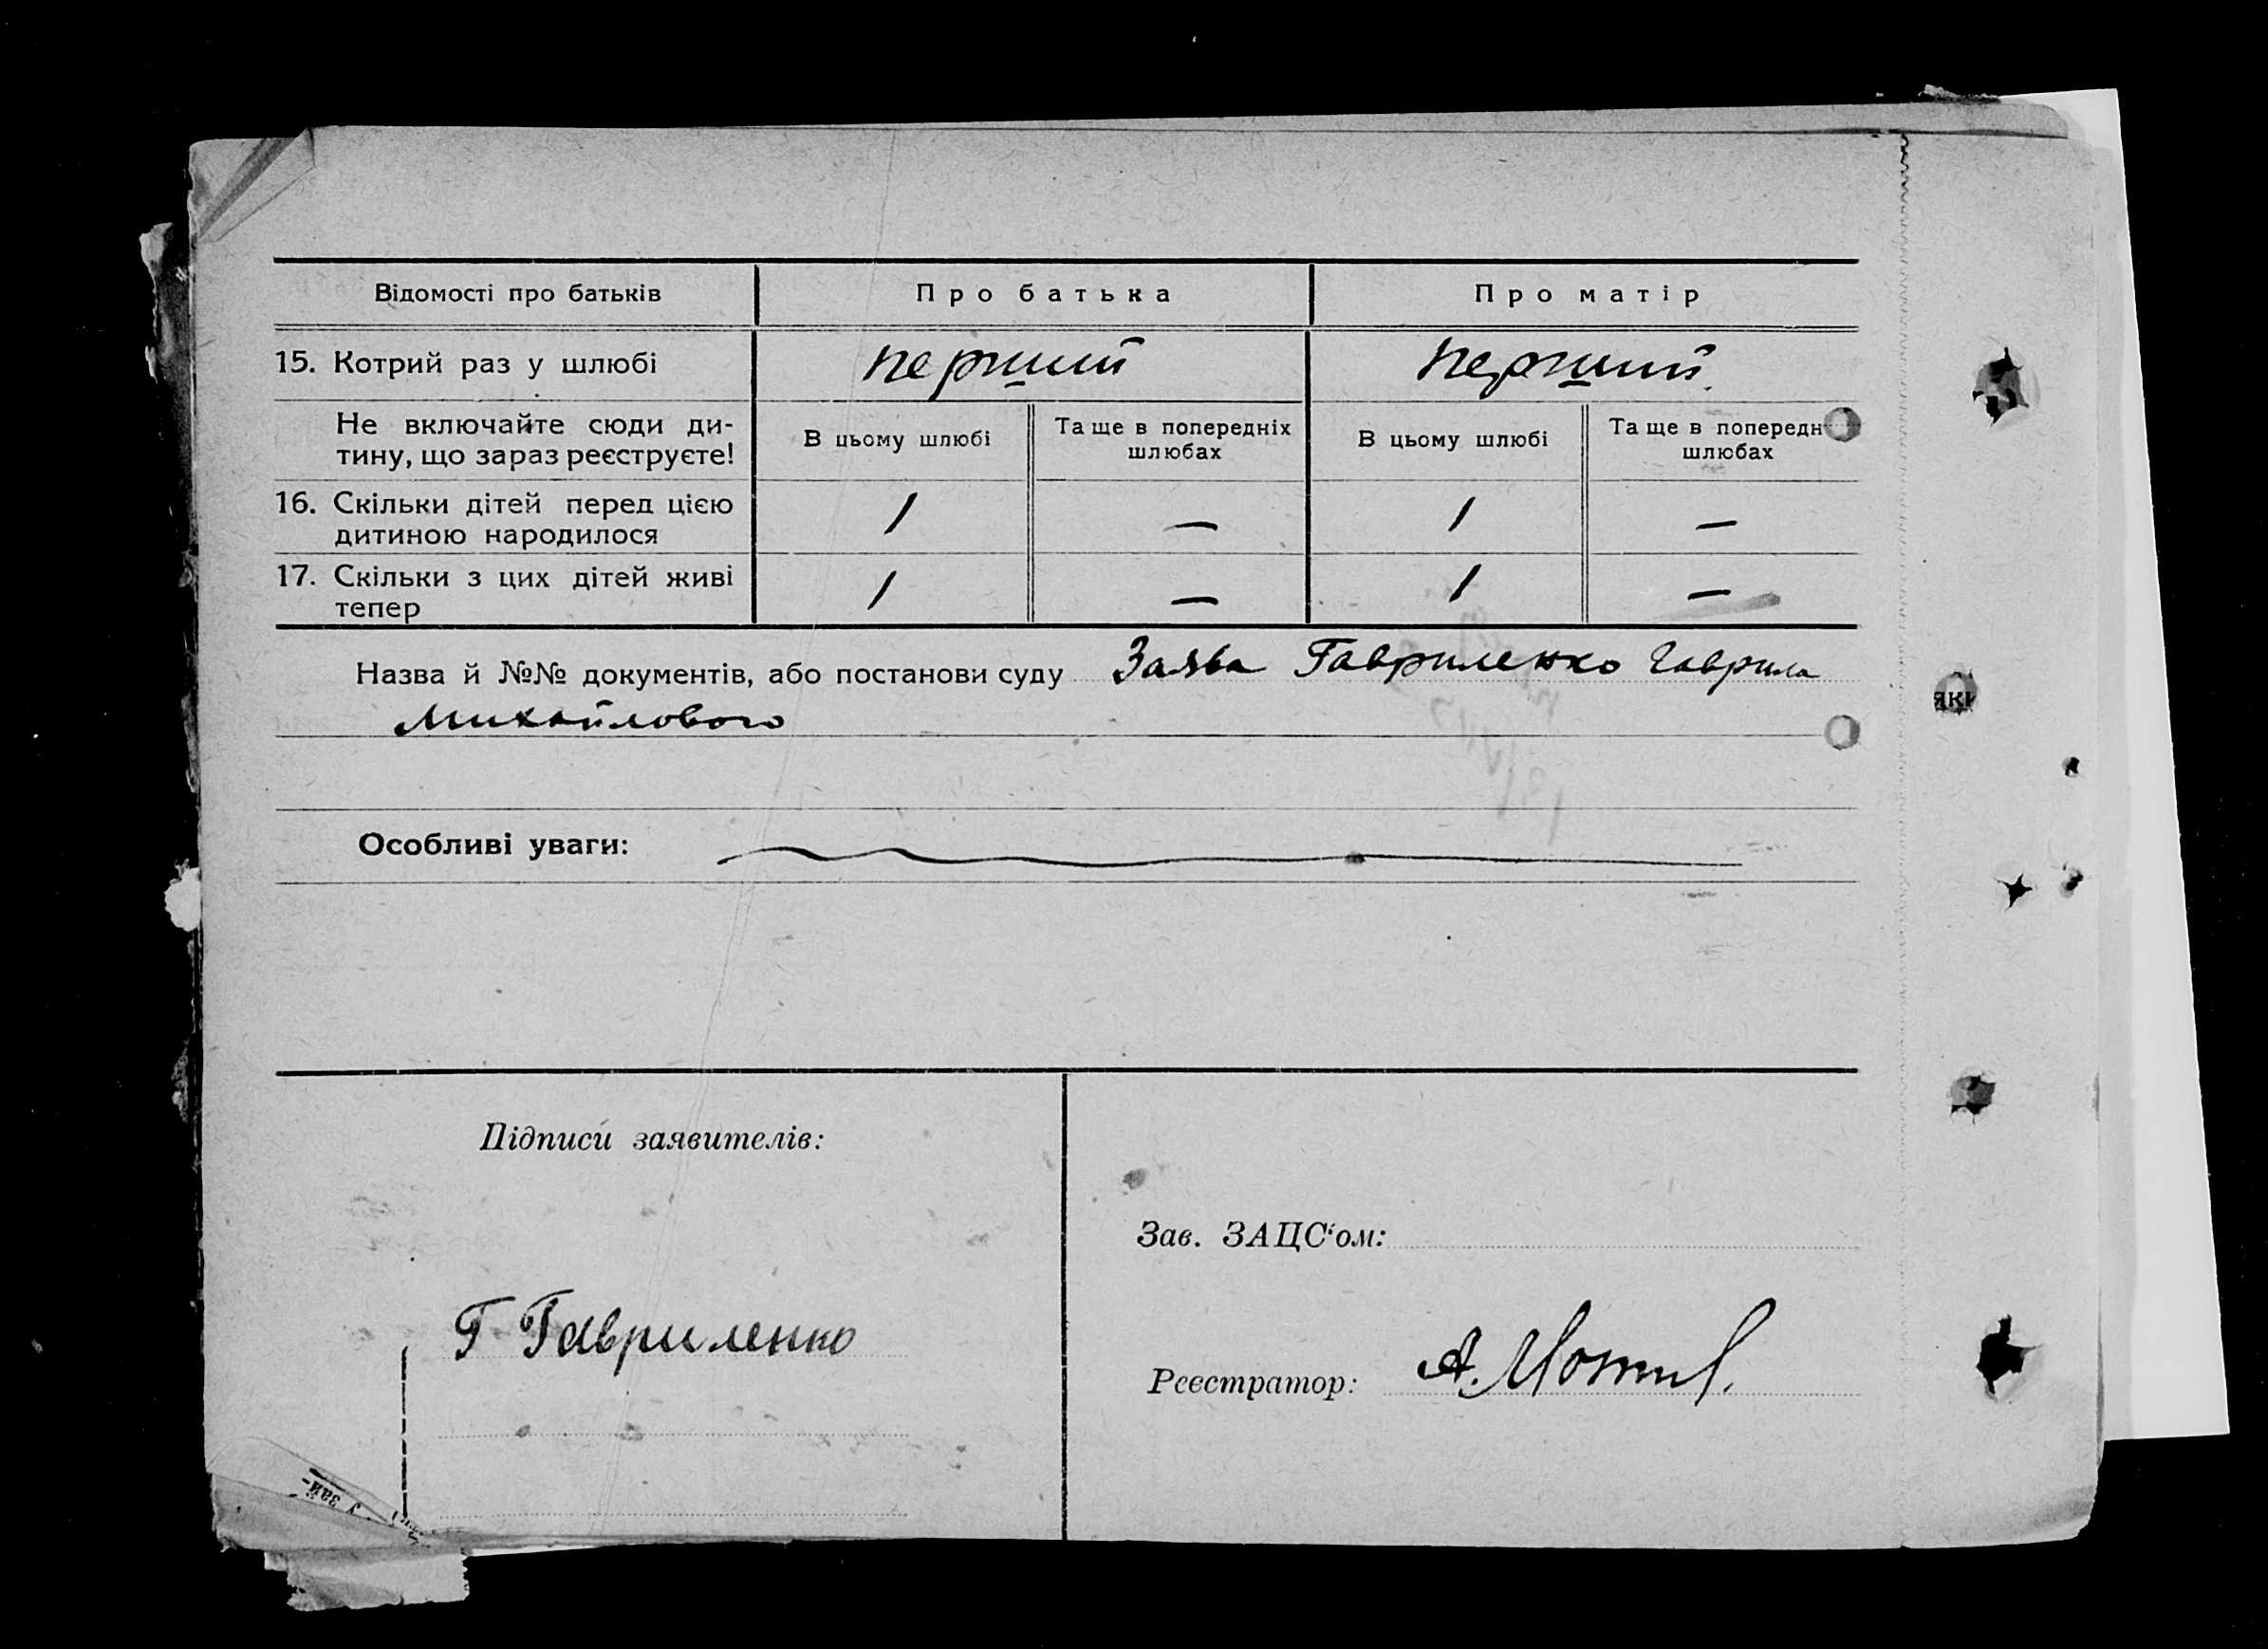 Відомості про батьків Про батька Про матір
15. Котрий раз у шлюбі перший перший
Не включайте сюди ди-
тину, що зараз реєструєте!
В цьому шлюбі
Та ще в попередніх
шлюбах
В цьому шлюбі
Та ще в попередн
шлюбах
16. Скільки дітей перед цією
дитиною народилося
1 — 1 —
17. Скільки з цих дітей живі
тепер
1 — 1 —
Назва й №№ документів, або постанови суду Заява Гавриленко Гаврила
Михайлового
Особливі уваги:
Підписи заявителів:
Г Гавриленко
Зав. ЗАЦС'ом:
Реєстратор: А.
у зай-